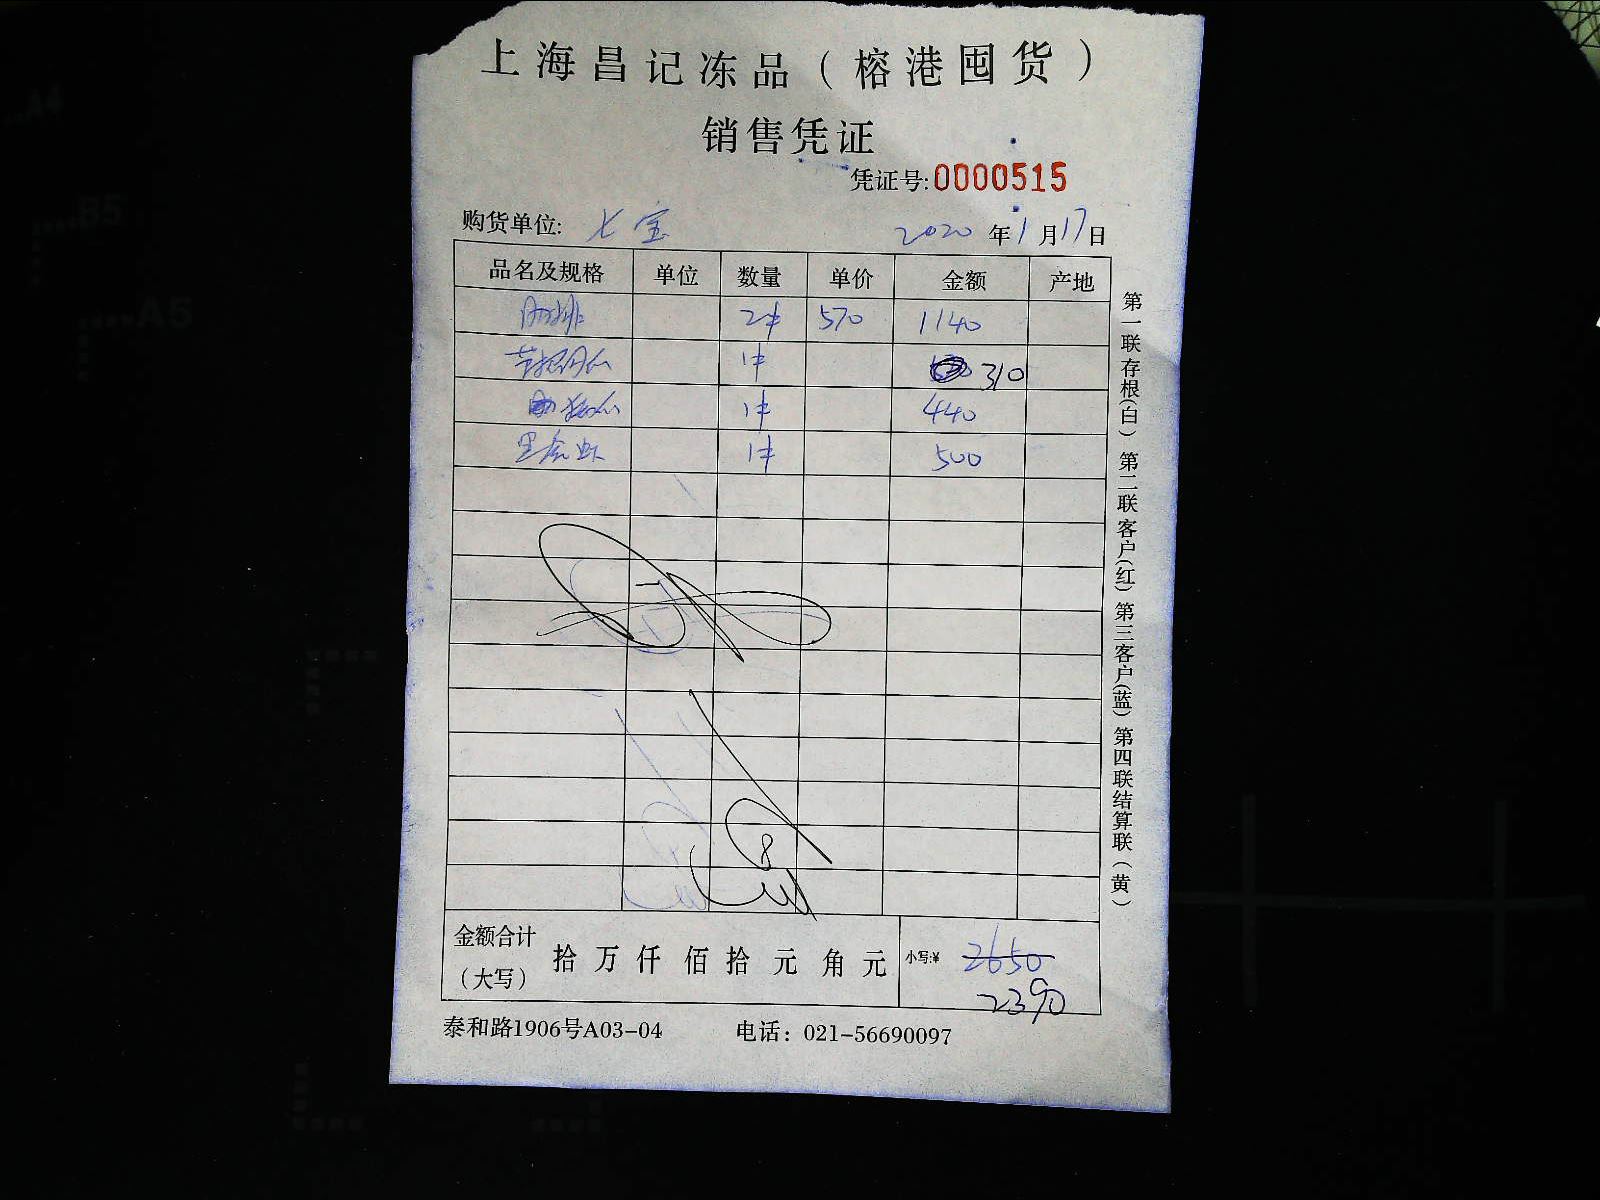 上海昌记冻品（榕港囤货）
销售凭证
凭证号:0000515
购货单位: 七宝 2020年1月17日
品名及规格 单位 数量 单价 金额 产地
2件 570 1140
1件 310
1件 440
1件 500
金额合计（大写） 拾 万 仟 佰 拾 元 角 元 小写:¥ 2650
2390
泰和路1906号A03-04 电话：021-56690097
第一联存根（白）第二联客户（红）第三客户（蓝）第四联结算联（黄）